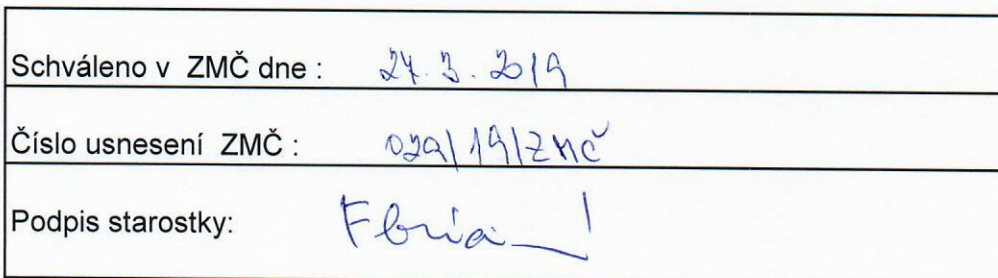 Schváleno v ZMČ dne : 27. 3. 2019
Číslo usnesení ZMČ : 029/19/ZMČ
Podpis starostky: